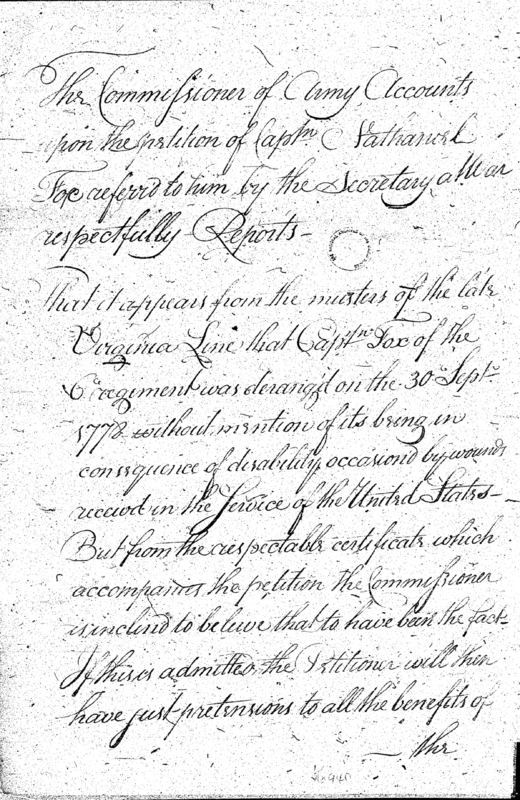 The Commissioner of Army Accounts
upon the petition of Captn Nathaniel
Fox referr'd to him by the Secretary at War
respectfully Reports –
That it appears from the musters of the late
Virginia Line that Captn Fox of the
6 regiment was derang'd on the 30 Septr
1778 without mention of its being in
consequence of disability occasion'd by wounds
receiv'd in the Service of the United States –
But from the respectable certificate which
accompanies the petition the Commissioner
is inclin'd to believe that to have been the fact –
If this is admitted, the Petitioner will then
have just pretensions to all the benefits of
– the